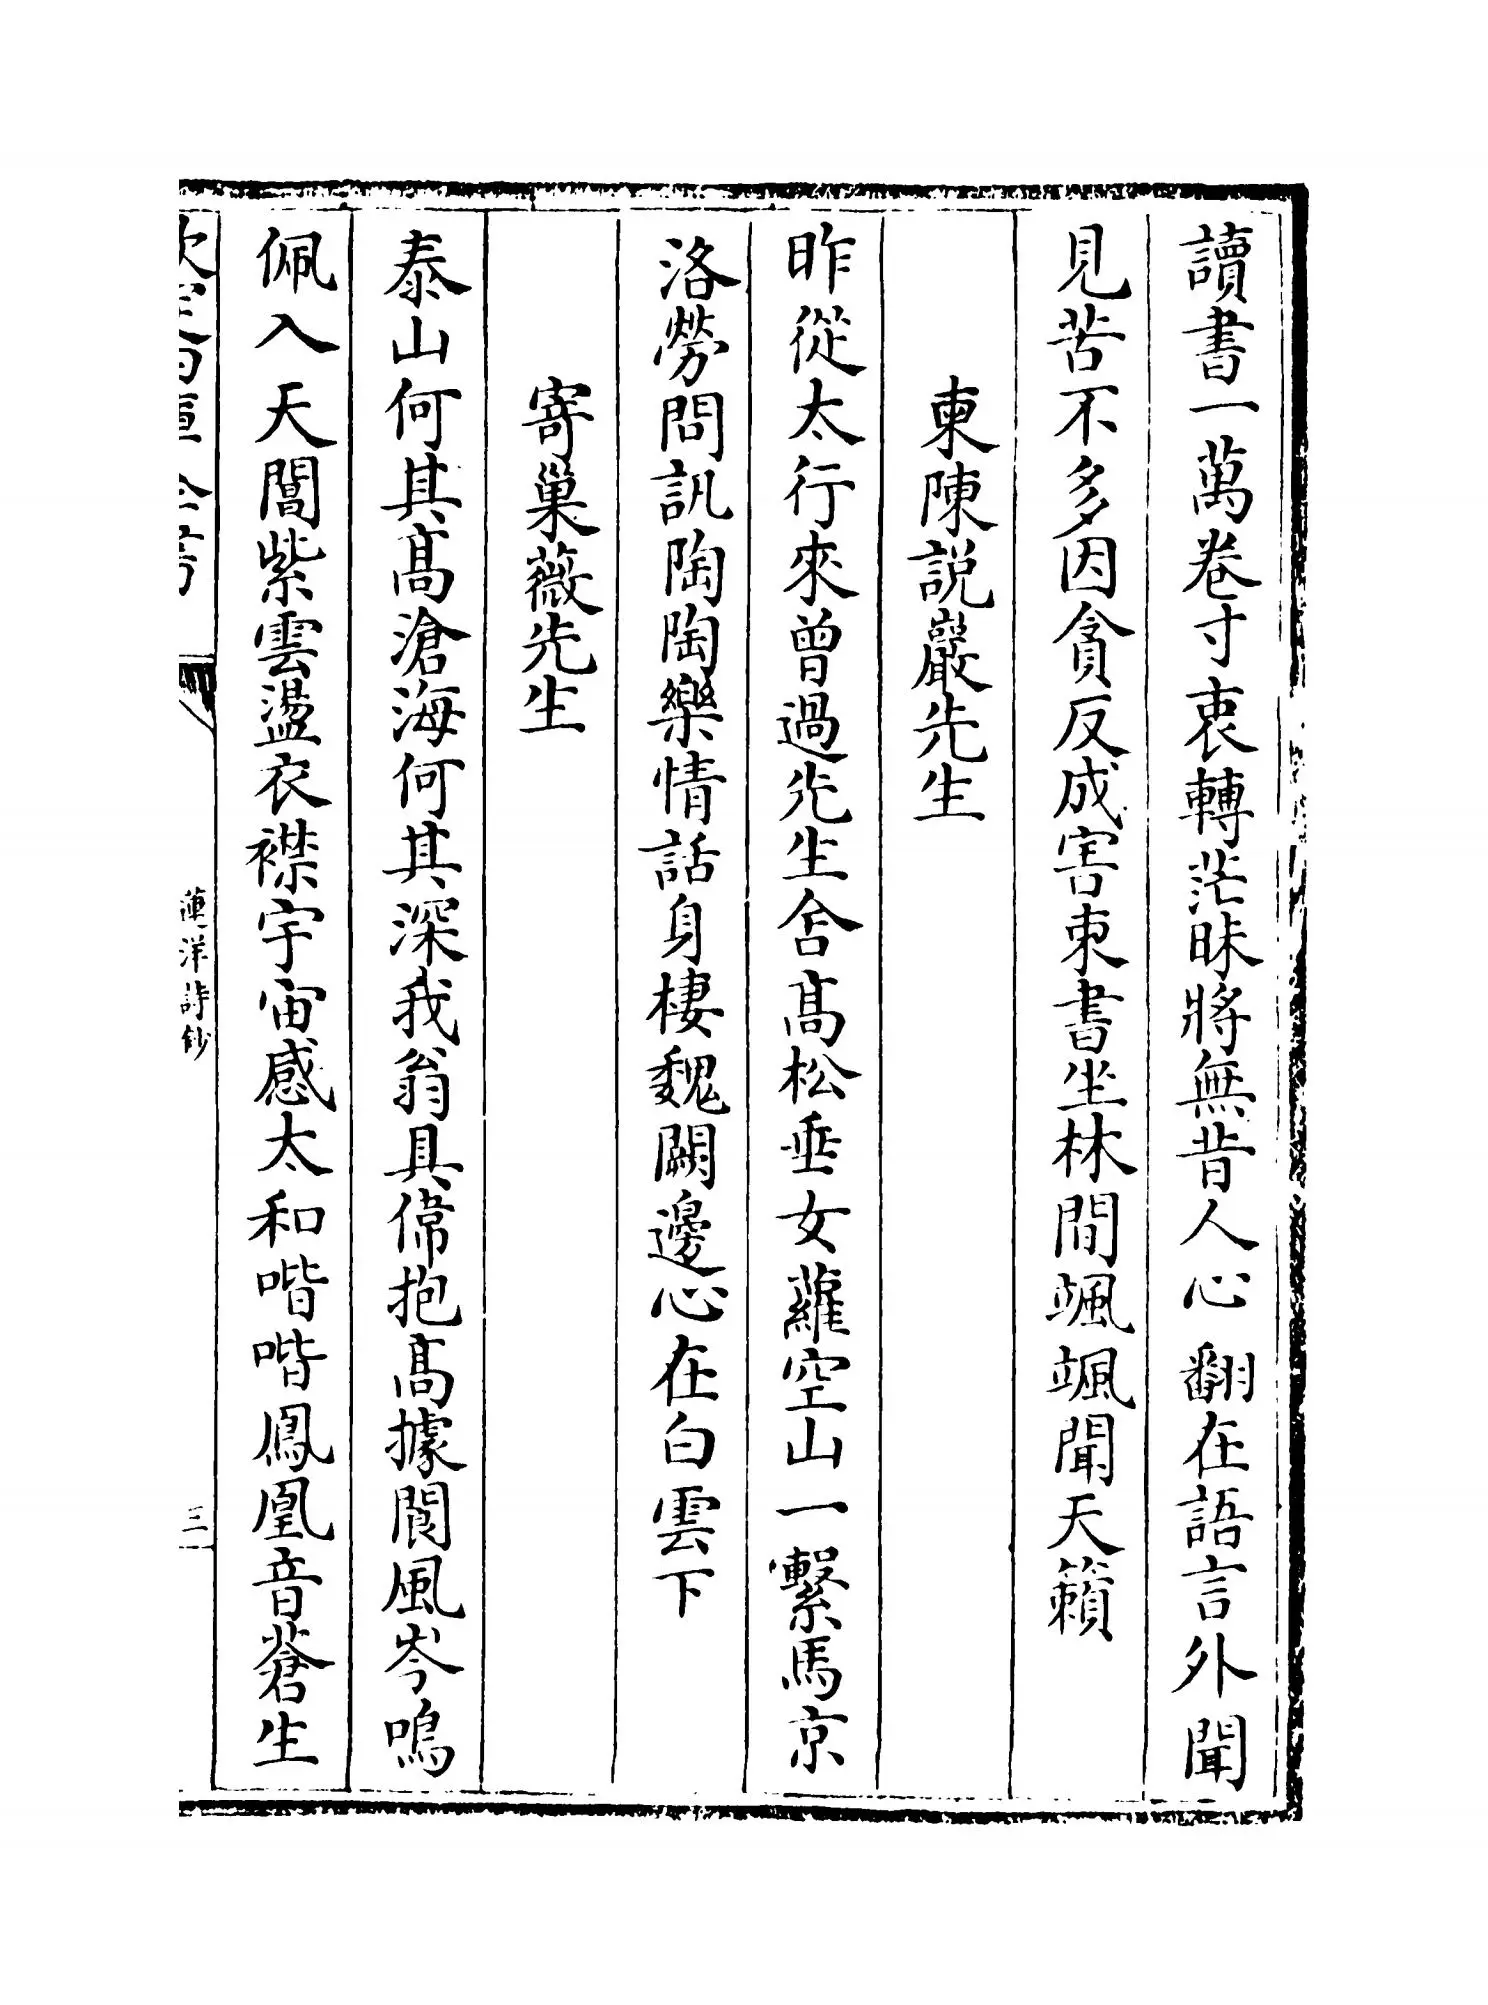 讀書一萬卷寸衷轉茫昧將無昔人心翻在語言外聞
見苦不多因貪反成害束書坐林間颯颯聞天籟
柬陳説巖先生
昨從太行來曾過先生舍髙松垂女蘿空山一繫馬京
洛勞問訊陶陶樂情話身棲魏闕邊心在白雲下
寄巢薇先生
泰山何其髙滄海何其深我翁具偉抱髙據閬風岑鳴
佩入天閶紫雲盪衣襟宇宙感太和喈喈鳳凰音蒼生
欽定四庫全書
蓮洋詩鈔
三